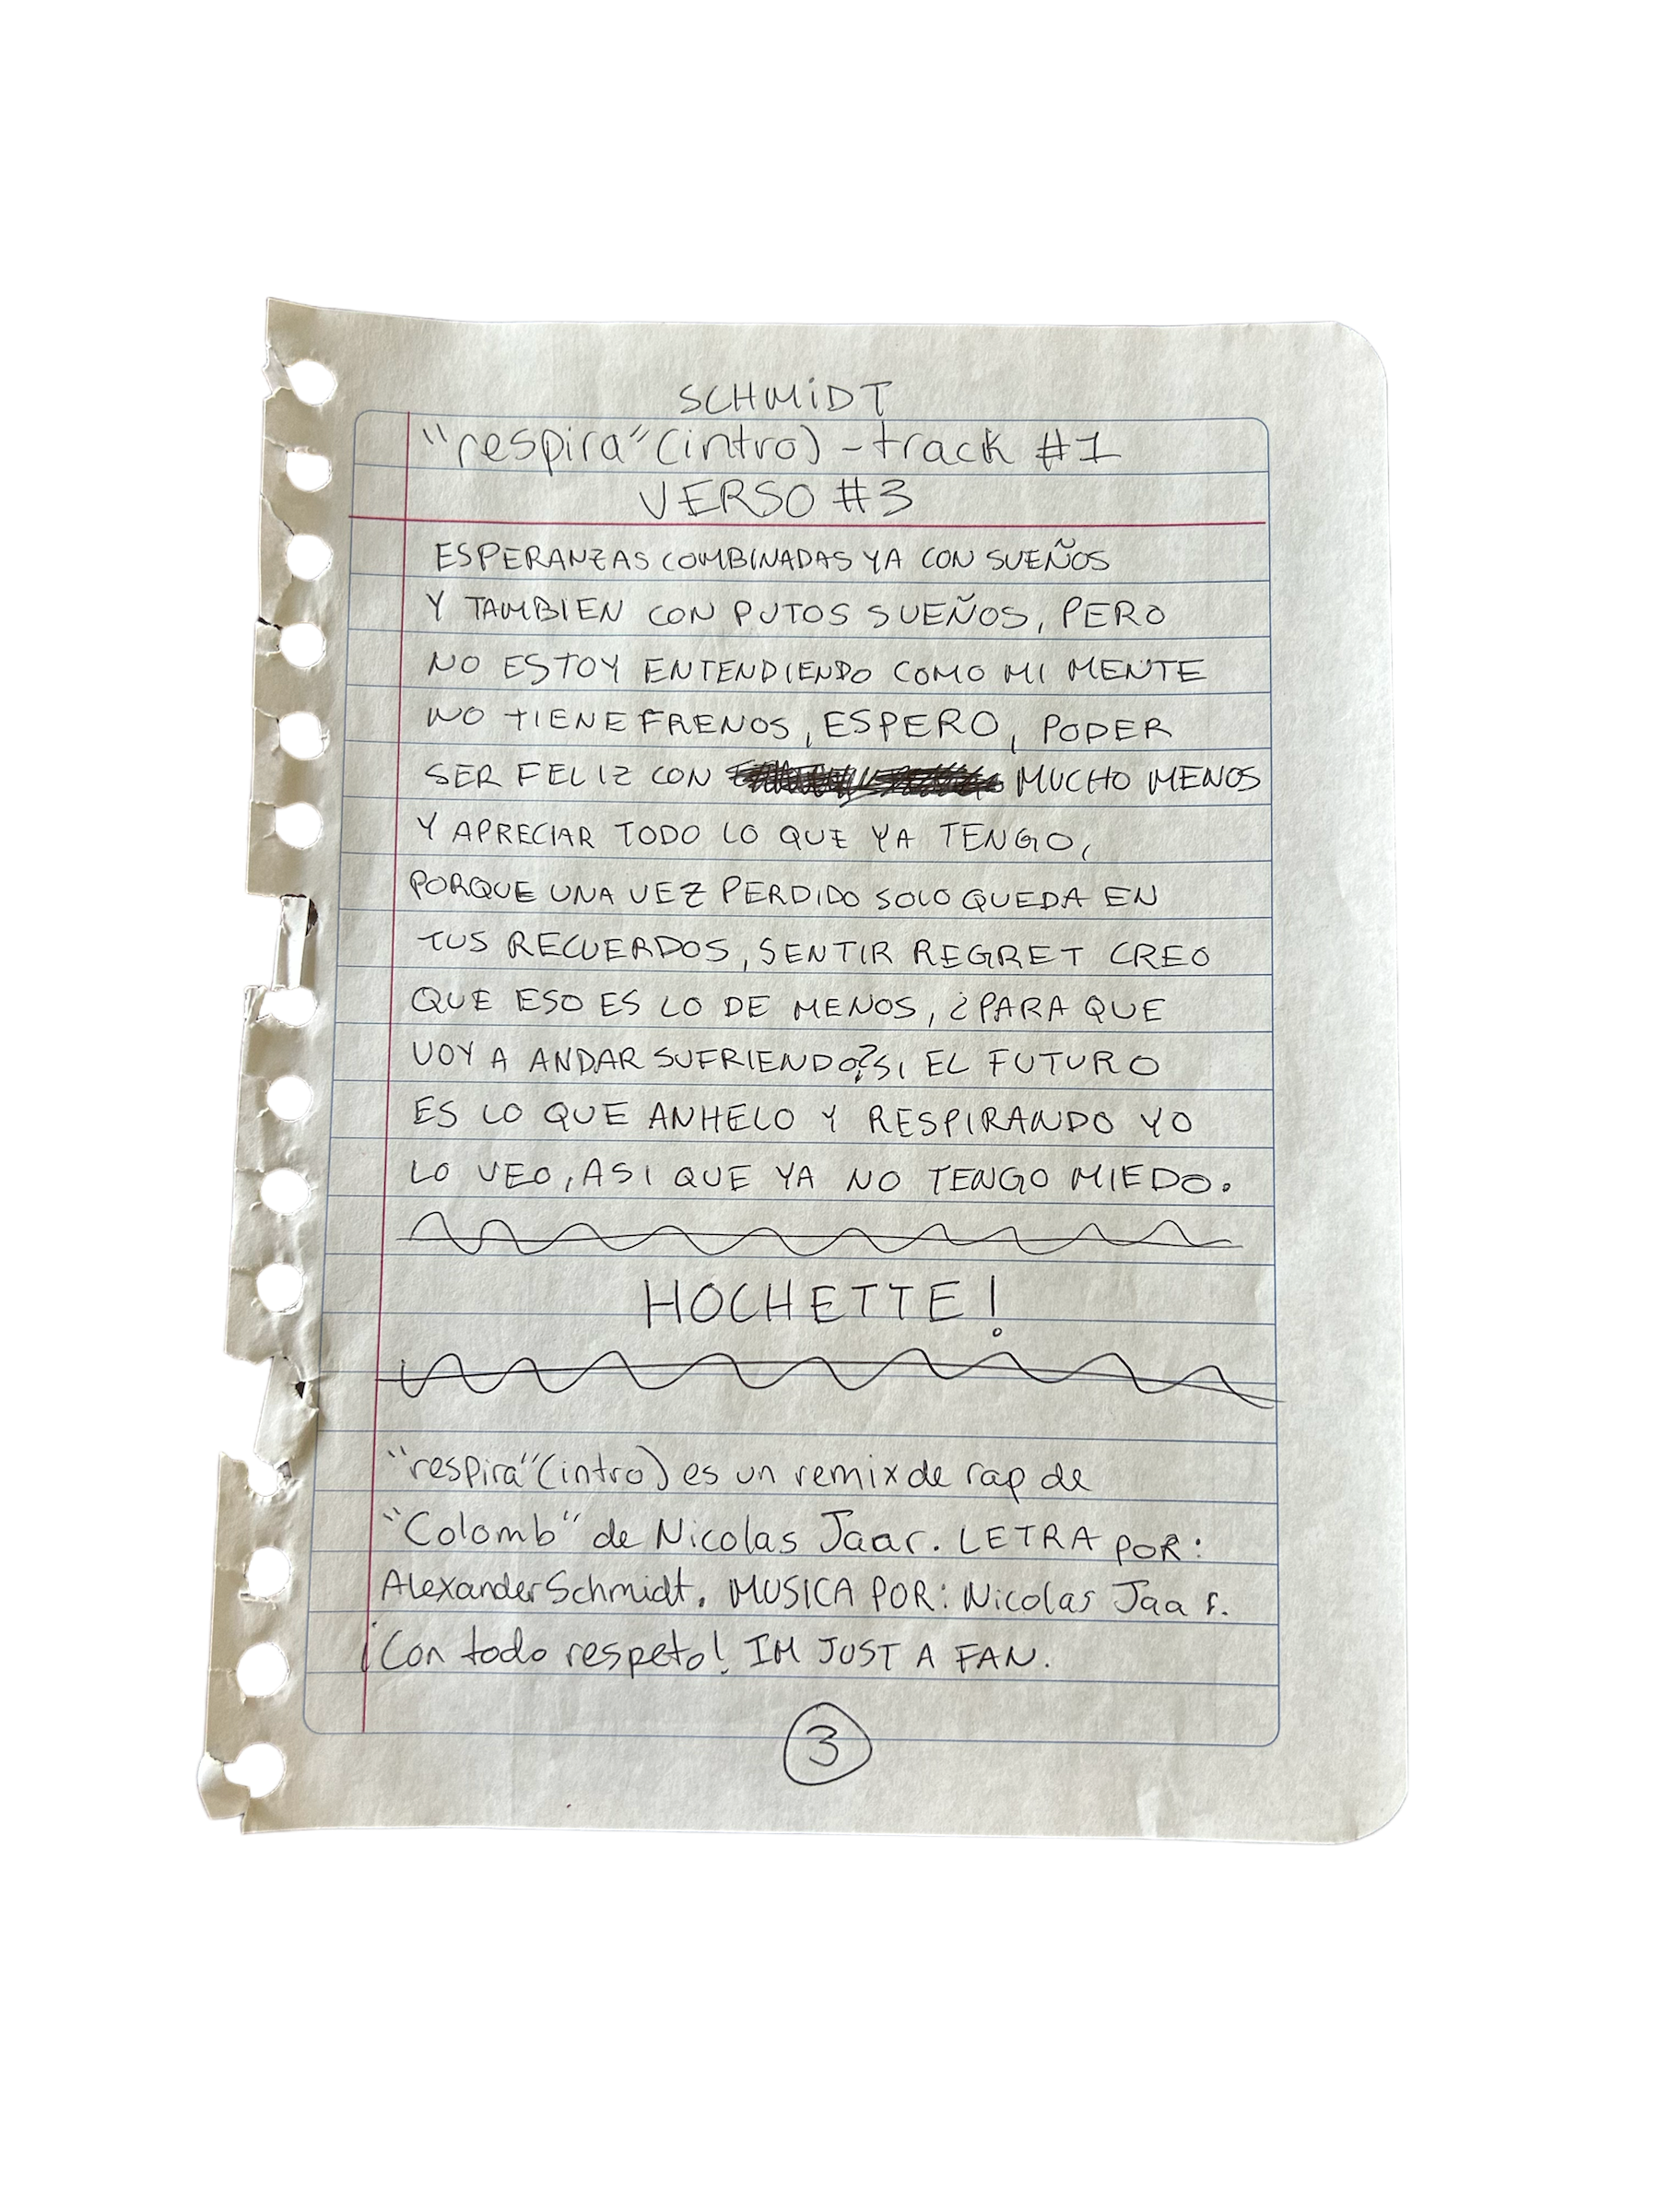 SCHMiDT
"respira" (intro) - track #1
VERSO #3
ESPERANZAS COMBINADAS YA CON SUEÑOS
Y TAMBIEN CON PUTOS SUEÑOS, PERO
NO ESTOY ENTENDIENDO COMO MI MENTE
NO TIENE FRENOS, ESPERO, PODER
SER FELIZ CON MUCHO MENOS
Y APRECIAR TODO LO QUE YA TENGO,
PORQUE UNA VEZ PERDIDO SOLO QUEDA EN
TUS RECUERDOS, SENTIR REGRET CREO
QUE ESO ES LO DE MENOS, ¿PARA QUE
VOY A ANDAR SUFRIENDO? SI EL FUTURO
ES LO QUE ANHELO Y RESPIRANDO YO
LO VEO, ASI QUE YA NO TENGO MIEDO.
HOCHETTE!
"respira" (intro) es un remix de rap de
"Colomb" de Nicolas Jaar. LETRA POR:
Alexander Schmidt. MUSICA POR: Nicolas Jaar.
¡Con todo respeto! IM JUST A FAN.
3